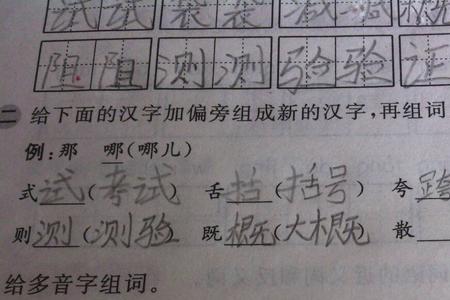 试 试 袋 袋 减 减 概
阻 阻 测 测 验 验 证
二 给下面的汉字加偏旁组成新的汉字,再组词
例:那 哪(哪儿)
式 试(考试) 舌 括(括号) 夸 跨
则 测(测验) 既 概(大概) 散
给多音字组词。